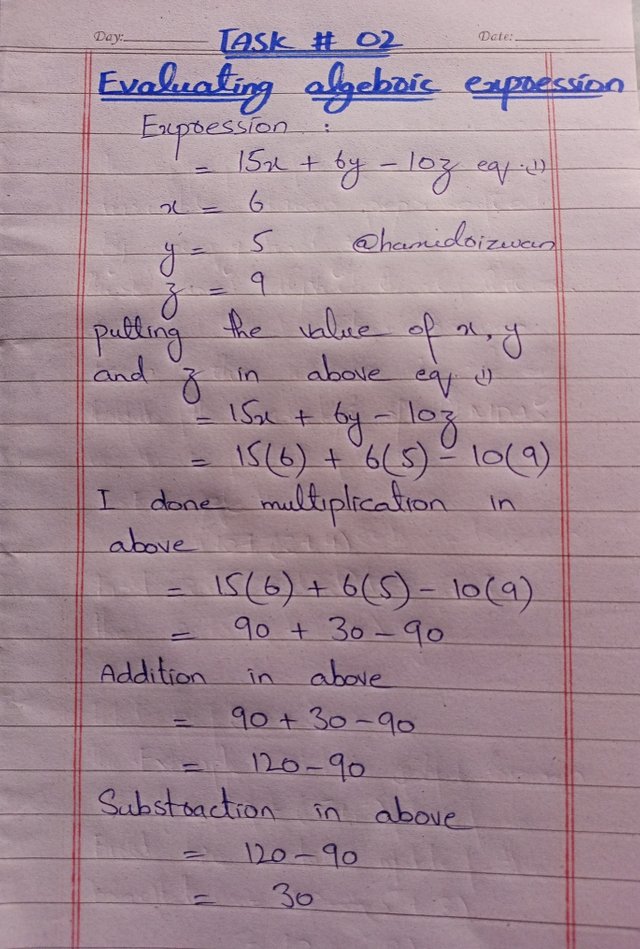 Day:
TASK # 02
Date:
Evaluating algebraic expression
Expression :
= 15x + 6y - 10z eq .(1)
x = 6
y = 5 @hamidrizwan
z = 9
putting the value of x, y
and z in above eq (1)
= 15x + 6y - 10z
= 15(6) + 6(5) - 10(9)
I done multiplication in
above
= 15(6) + 6(5) - 10(9)
= 90 + 30 - 90
Addition in above
= 90 + 30 - 90
= 120 - 90
Substraction in above
= 120 - 90
= 30